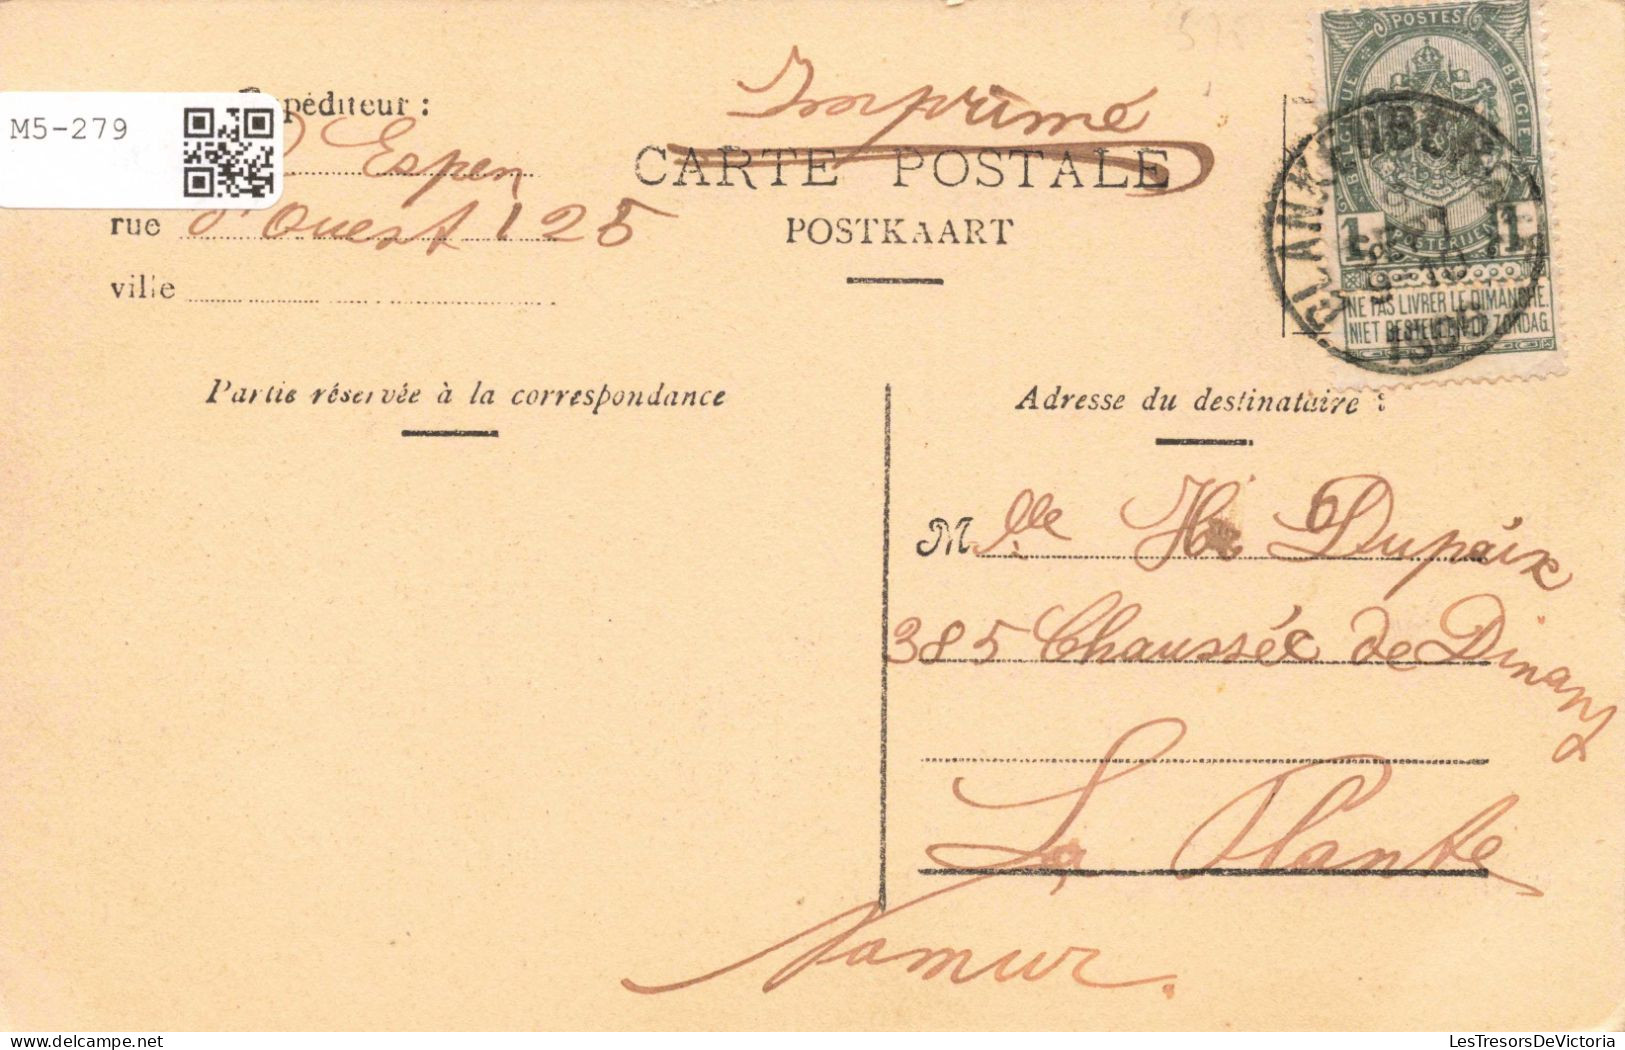 M5-279
péditeur :
Espen
rue d'Ouest 125
ville
Imprimé
CARTE POSTALE
POSTKAART
POSTES
BELGIQUE
BELGIË
1 POSTERIJEN 1
NE PAS LIVRER LE DIMANCHE.
NIET BESTELLEN OP ZONDAG
BLANKENBERGHE
Partie réservée à la correspondance
Adresse du destinataire :
Mlle H. Dupaix
385 Chaussée de Dinant
La Plante
Namur.
LesTresorsDeVictoria